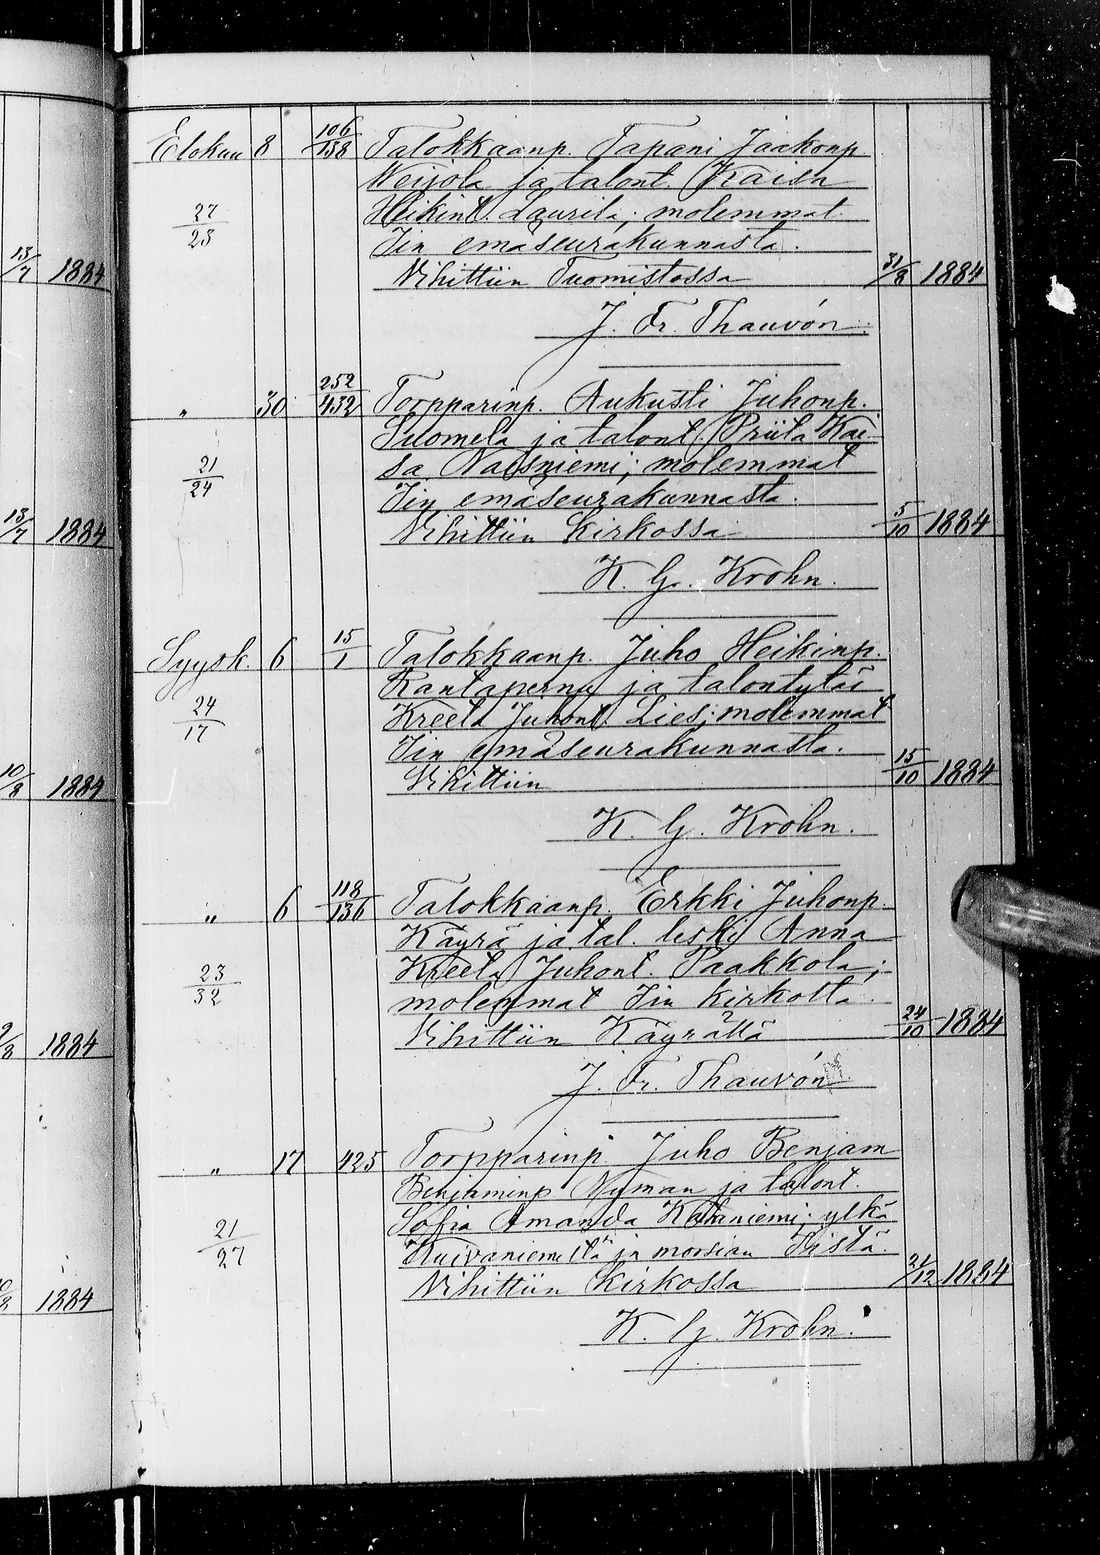 Elokuu 8 106/138 Talokkaanp. Tapani Jaakonp.
Weijola ja talont. Kaisa
27/23 Heikint. Laurila; molemmat
Iin emäseurakunnasta.
13/7 1884 Vihittiin Tuomistossa 31/8 1884
J. Fr. Thauvón.
" 30 252/432 Torpparinp. Aukusti Juhonp.
Suomela ja talont. Priita Kai-
21/24 sa Naisniemi; molemmat
Iin emäseurakunnasta.
13/7 1884 Vihittiin kirkossa 5/10 1884
K. G. Krohn.
Syysk. 6 15/1 Talokkaanp. Juho Heikinp.
Kantaperna ja talontytär
24/17 Kreeta Juhont. Lies; molemmat
Iin emäseurakunnasta.
10/8 1884 Vihittiin 15/10 1884
K. G. Krohn.
" 6 118/136 Talokkaanp. Erkki Juhonp.
Käyrä ja tal. leski Anna
23/32 Kreeta Juhont. Paakkola;
molemmat Iin kirkolta.
1884 Vihittiin Käyrällä 24/10 1884
J. Fr. Thauvón
" 17 425 Torpparinp. Juho Benjam
Benjaminp. Nyman ja talont.
21/27 Sofia Amanda Kataniemi; ylkä
"Kuivaniemeltä" ja morsian Iistä.
1884 Vihittiin kirkossa 21/12 1884
K. G. Krohn.